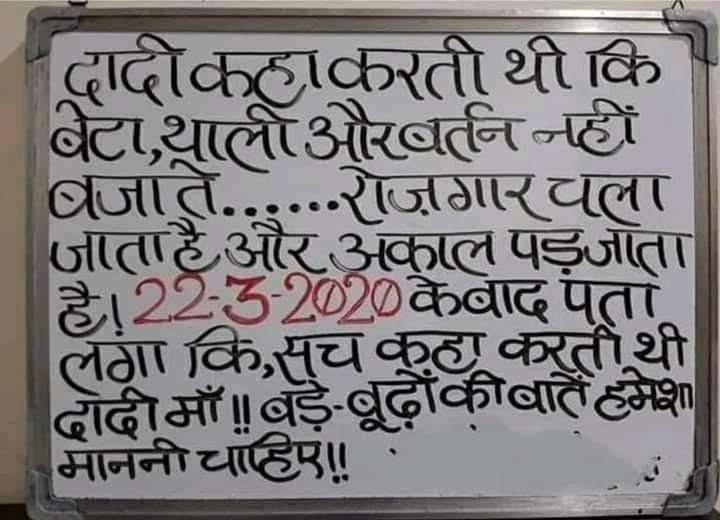 दादी कहा करती थी कि
बेटा,थाली और बर्तन नहीं
बजाते......रोज़गार चला
जाता है और अकाल पड़ जाता
है। 22-3-2020 के बाद पता
लगा कि,सच कहा करती थी
दादी माँ!! बड़े-बूढ़ों की बातें हमेशा
माननी चाहिए!!